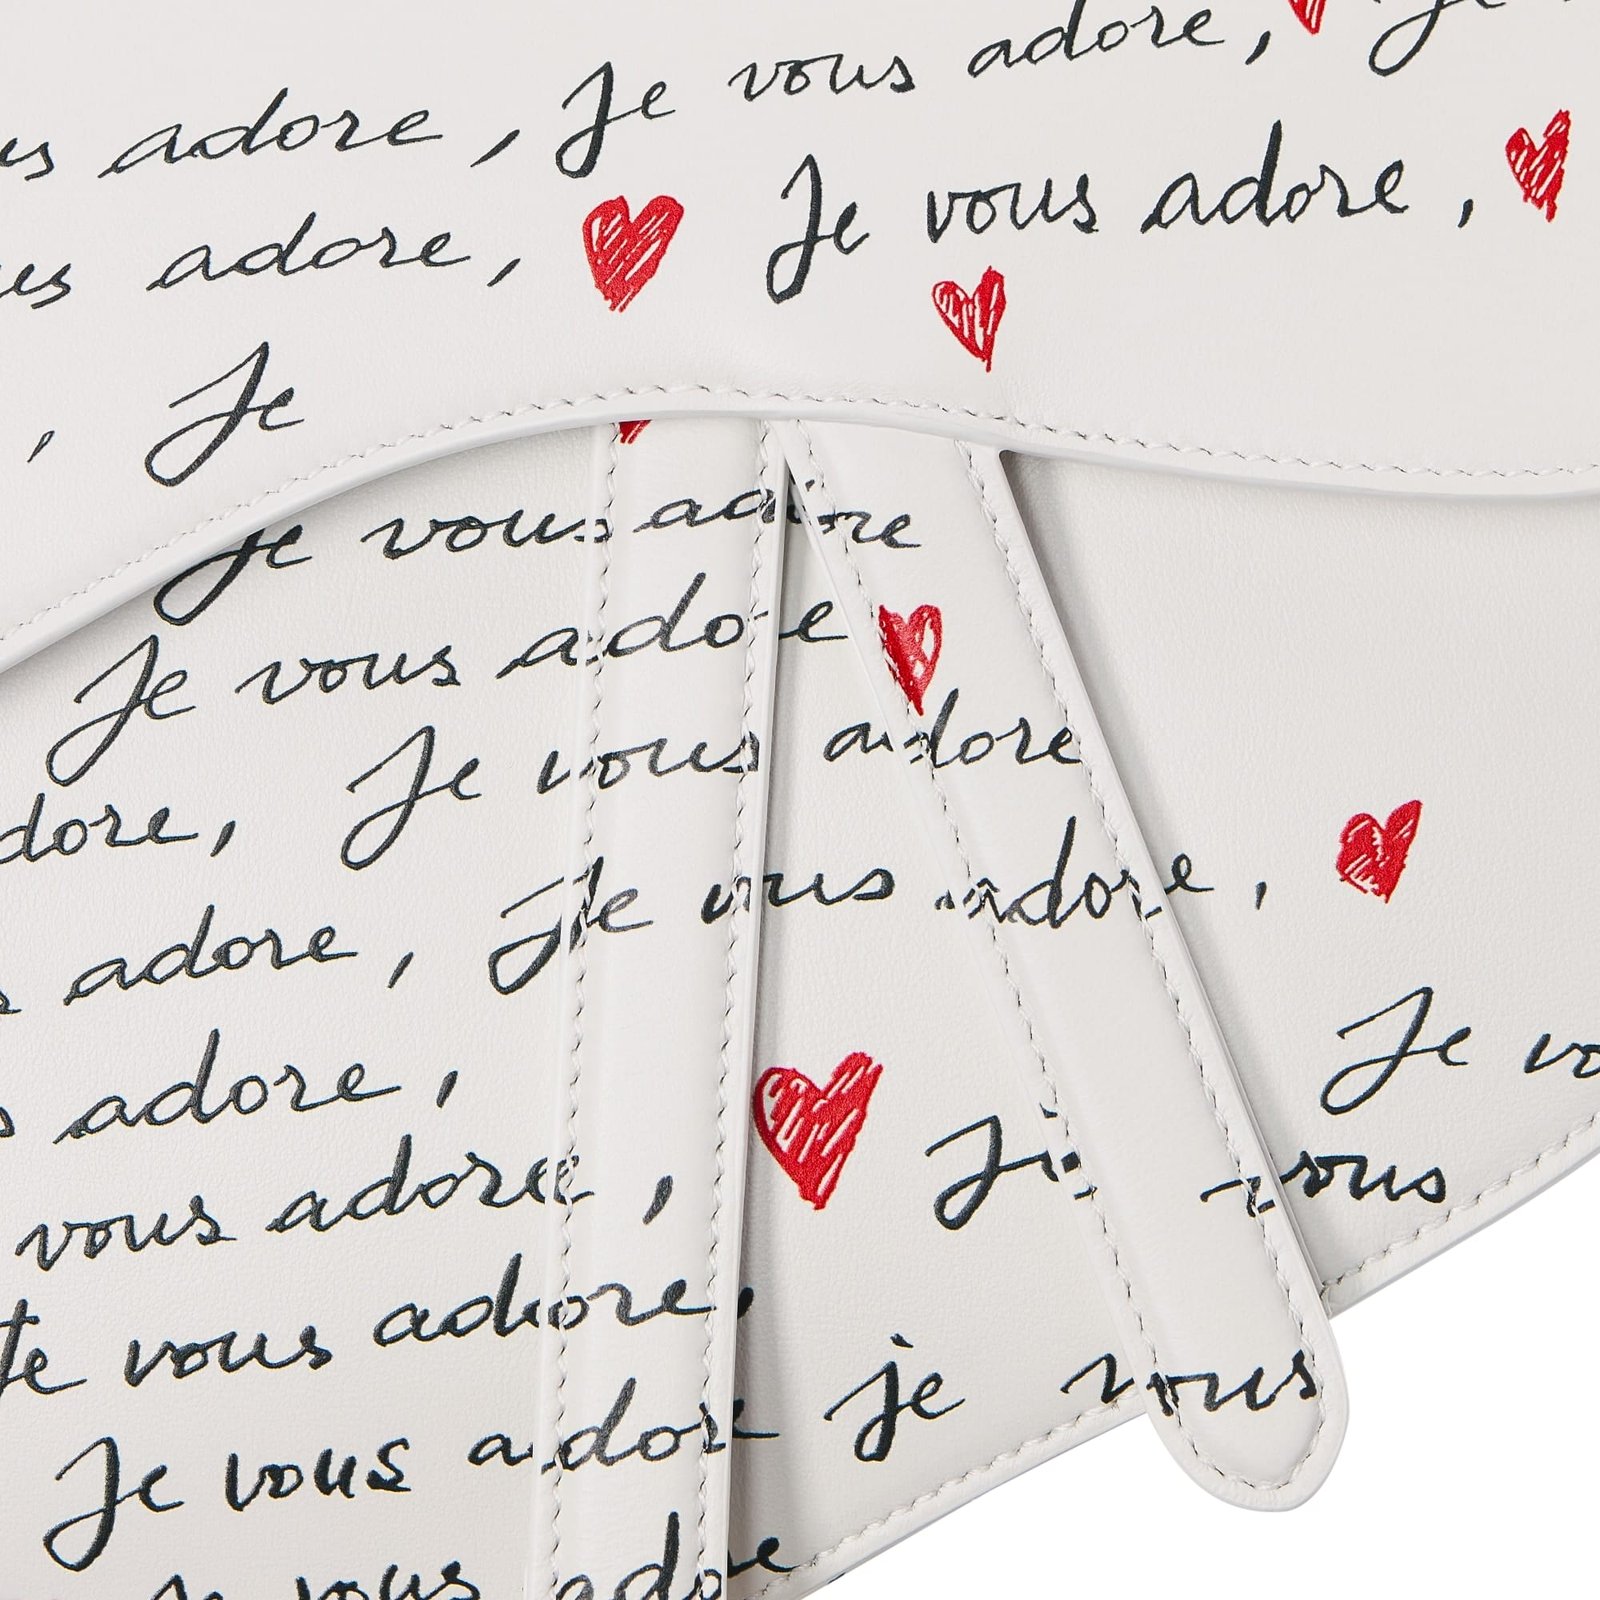 adore, Je vous adore, Je
adore, Je vous adore,
, Je
Je vous adore
Je vous adore
adore, Je vous adore
adore, Je vous adore,
adore, Je
vous adore, Je vous
vous adore,
Je vous adore je vous
vous adore